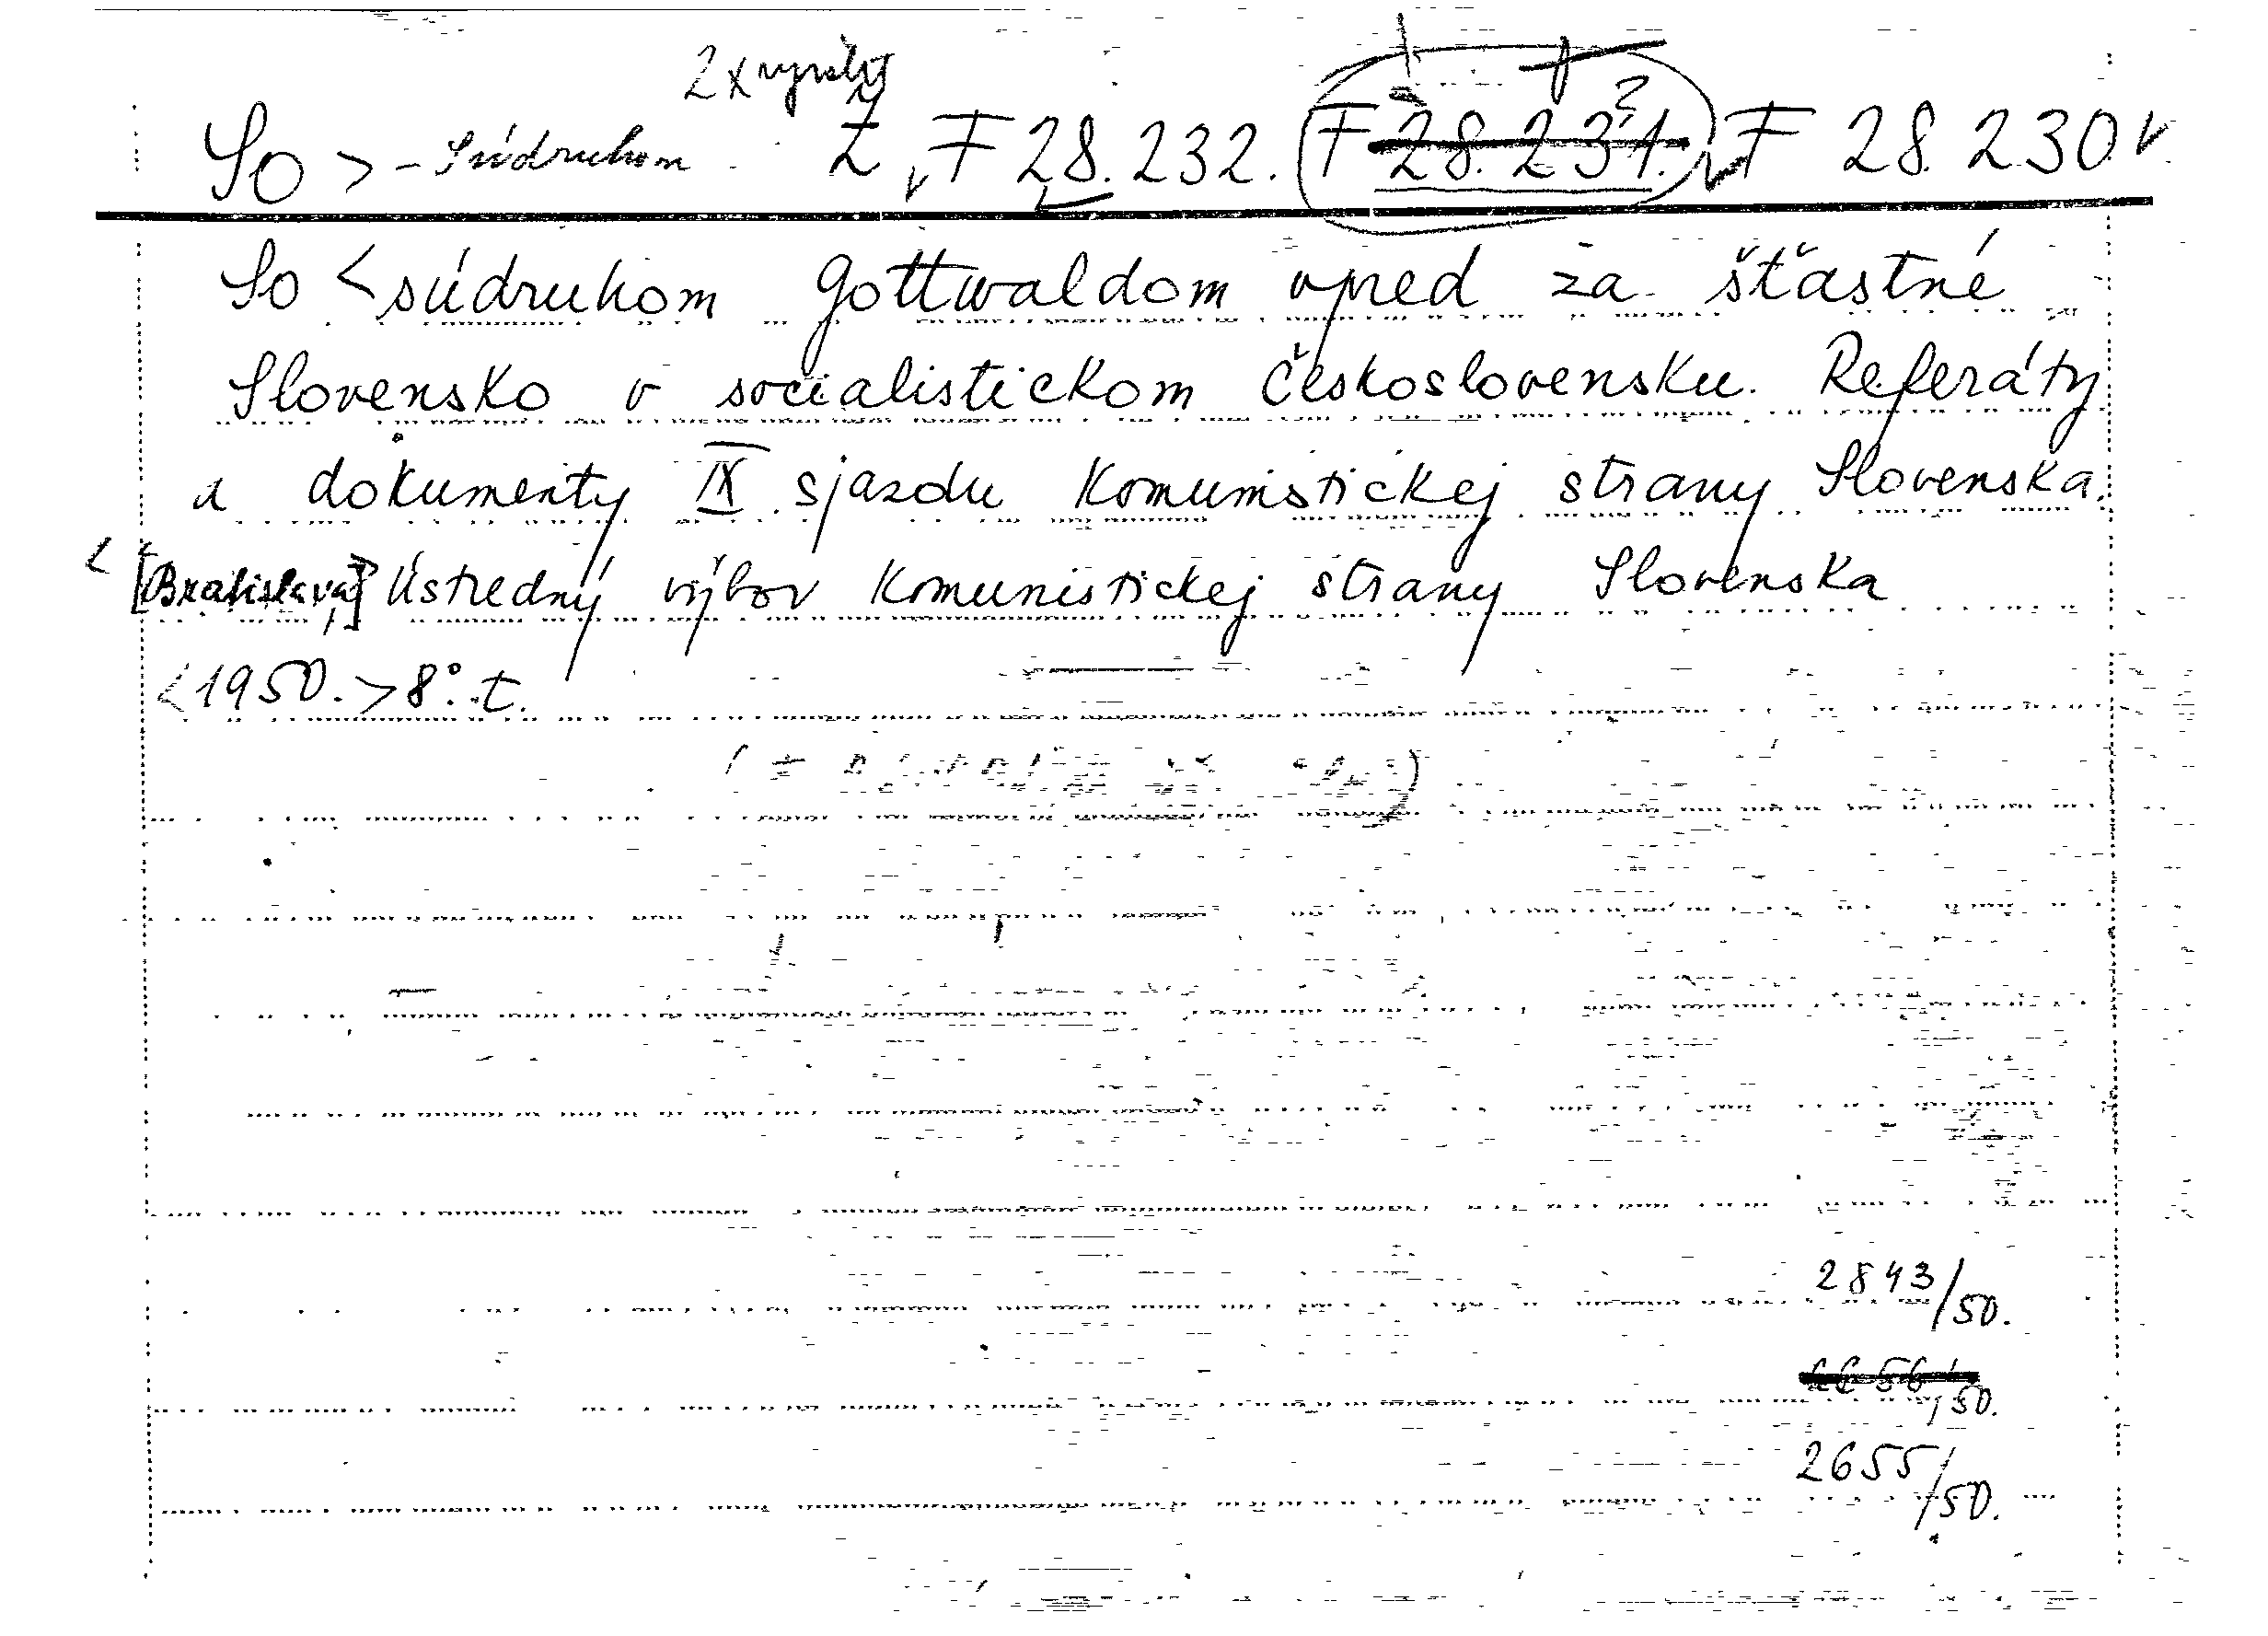 2x
So > - Súdruhom Ž F 28.232. F 28.231. F 28.230
So < súdruhom Gottwaldom vpred za šťastné
Slovensko v socialistickom Československu. Referáty
a dokumenty IX sjazdu Komunistickej strany Slovenska.
< [Bratislava,] Ústredný výbor Komunistickej strany Slovenska
< 1950. > 8°. t.
2843/50.
/50.
2655/50.